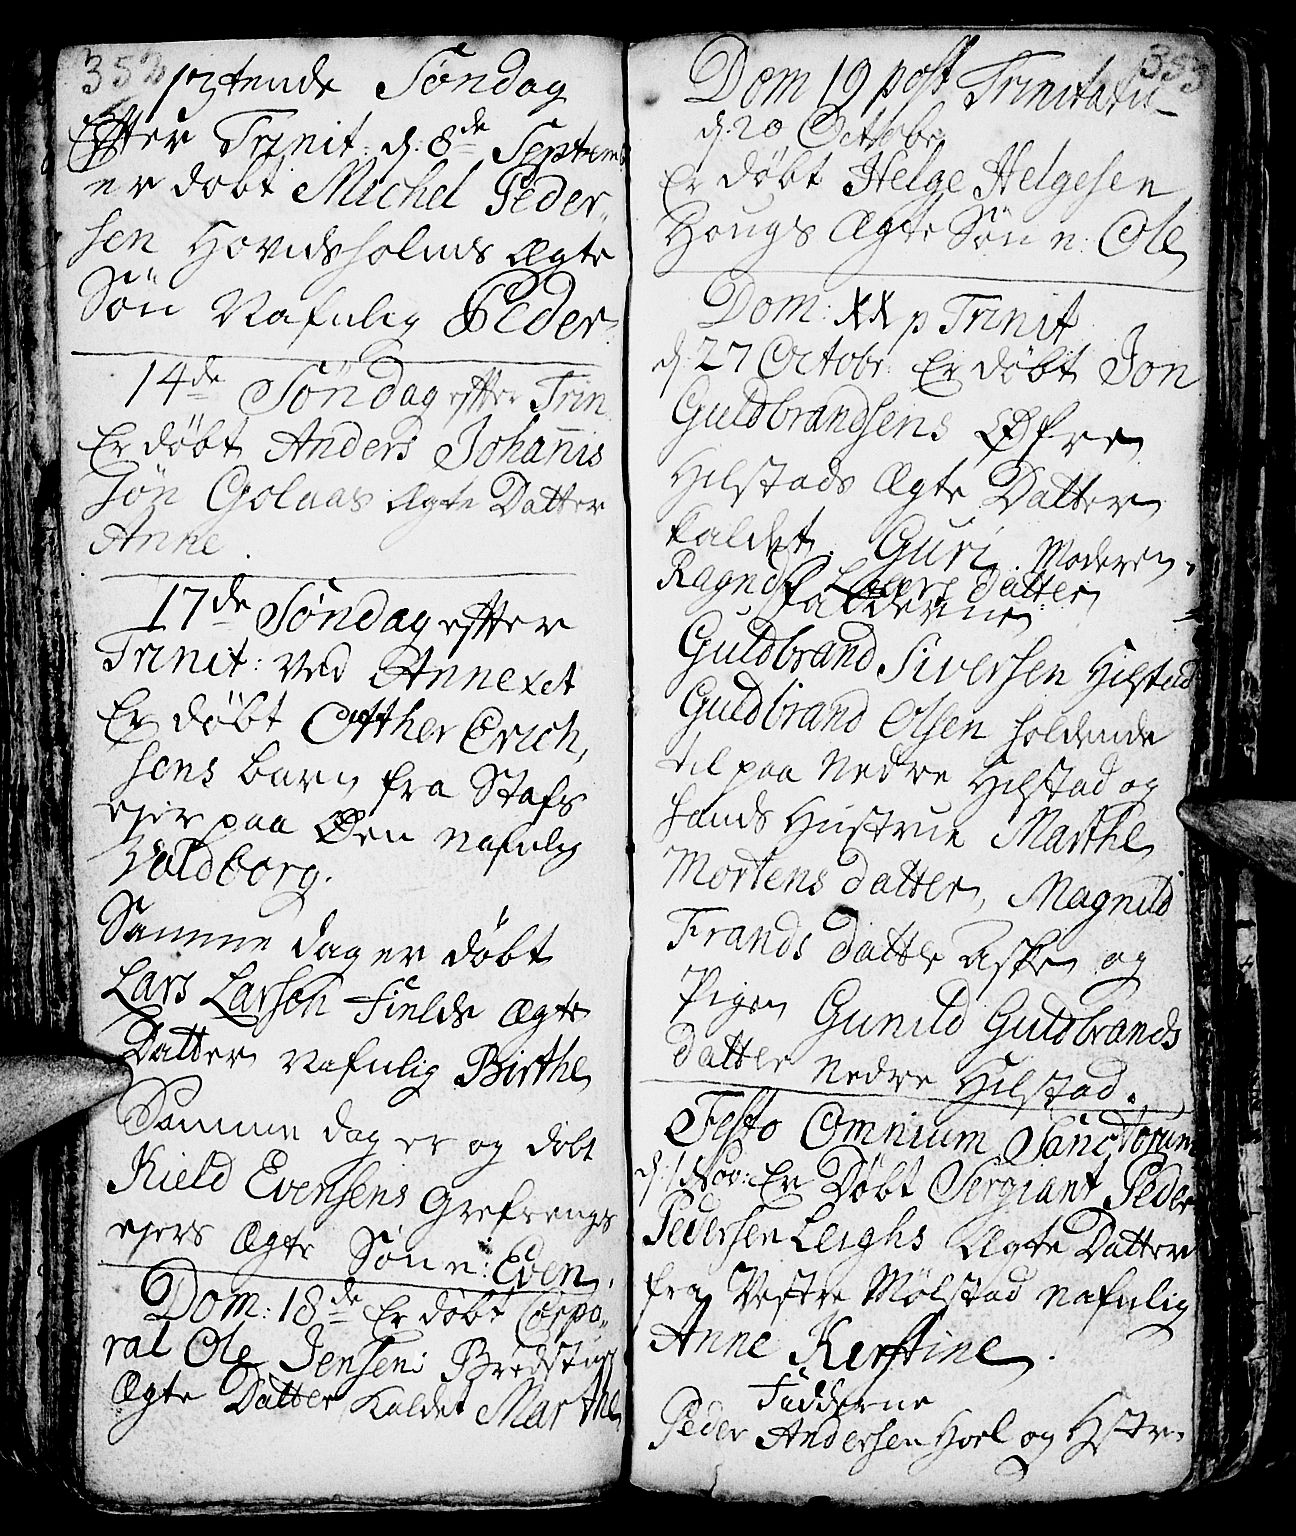 352
13tende Søndag
Effter Trinit: d: 8de Septemb
er døbt Michel Peder-
sen Hovidsholms Ægte
Søn Nafnlig Peder.
14de Søndag effter Trin
Er døbt Anders Johannis
søn Golaas Ægte Datter
Anne.
17de Søndag effter
Trinit: ved Annexet
Er døbt Otther Erich,
sens barn fra Stafs
ejer paa Øen nafnlig
Valdborg.
Samme dag er døbt
Lars Larsøn Fields Ægte
Datter Nafnlig Birthe
Samme dag er og døbt
Kield Evensens Grefrengs
ejers Ægte Søn n: Even.
Dom: 18de Er døbt Corpo-
ral Ole Jensens Bredstug
Ægte Datter kaldet Marthe
353
Dom 19 post Trinitatis
d. 20 Octobr
Er døbt Helge Helgesen
Hougs Ægte Søn n: Ole
Dom: XX p Trinit
d. 27 Octobr: Er døbt Jon
Guldbrandsens Øfre
Hilstads Ægte Datter
kaldet. Guri. Moderen.
Ragnd Lars datter
Fadderne
Guldbrand Siversen Hilstad
Guldbrand Olsen holdende
til paa Nedre Hilstad og
hands Hustrue Marthe
Mortens datter, Magnild
Frands datter Aske og
Pigen Gunild Guldbrands
datter Nedre Hilstad.
Festo Omnium Sanctorum
d. 1 Nov: Er Døbt Sergiant Peder
Pedersen Leighs Ægte Datter
fra Vestre Mølstad nafnlig
Anne Kerstine.
Fadderne
Peder Andersen Hoel og Hstr.